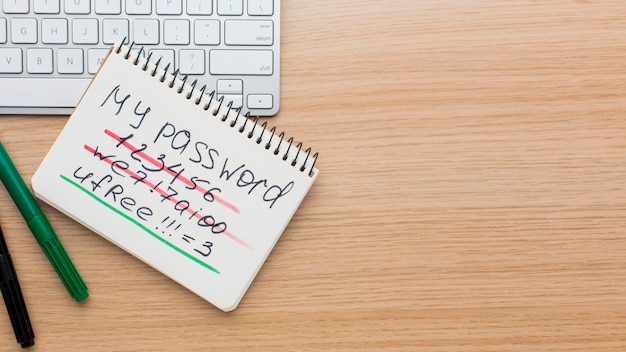 My password
123456
we7!7aioo
ufRee!!!=3